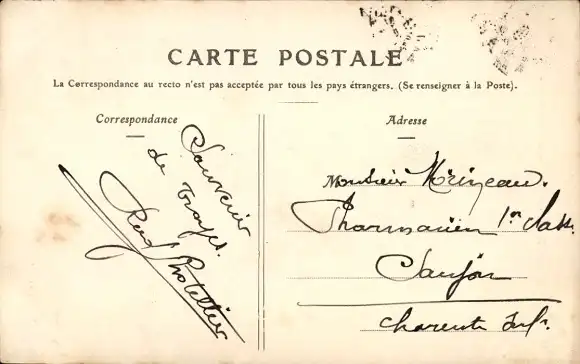 CARTE POSTALE
La Correspondance au recto n'est pas acceptée par tous les pays étrangers. (Se renseigner à la Poste).
Correspondance
Souvenir
de Troyes.
Adresse
Monsieur
Pharmacien 1er Classe
Saujon
Charente Infre